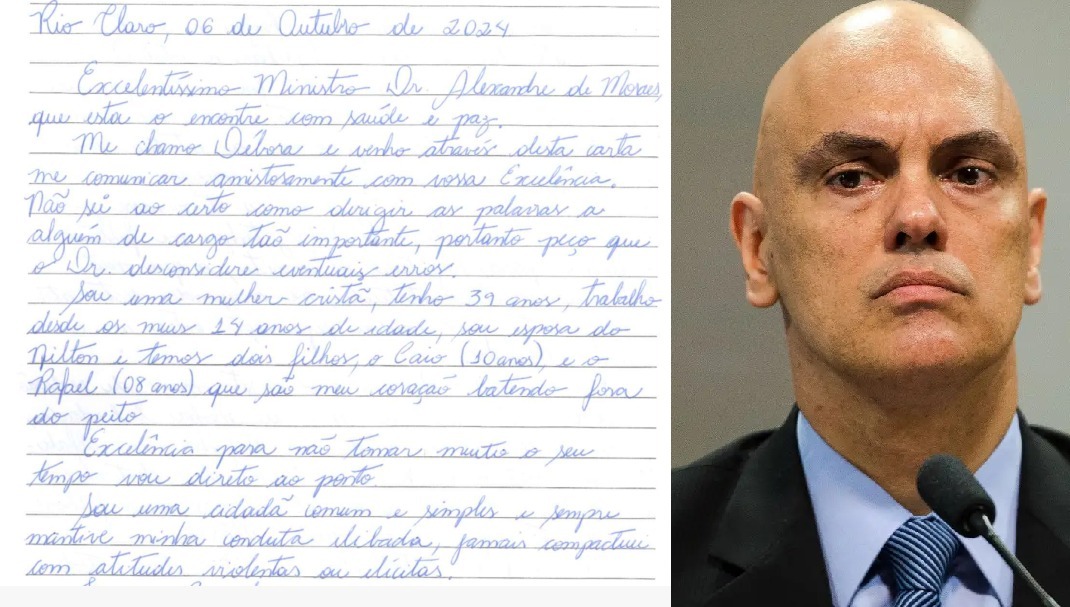 Rio Claro, 06 de Outubro de 2024
Excelentíssimo Ministro Dr. Alexandre de Moraes,
que esta o encontre com saúde e paz.
Me chamo Débora e venho através desta carta
me comunicar amistosamente com vossa Excelência.
Não sei ao certo como dirigir as palavras a
alguém de cargo taõ importante, portanto peço que
o Dr. desconsidere eventuais erros.
Sou uma mulher cristã, tenho 39 anos, trabalho
desde os meus 14 anos de idade, sou esposa do
Nilton e temos dois filhos, o Caio (10 anos), e o
Rafael (08 anos) que saõ meu coraçaõ batendo fora
do peito
Excelência para naõ tomar muito o seu
tempo vou direto ao ponto
Sou uma cidadã comum e simples e sempre
mantive minha conduta ilibada, jamais compactuei
com atitudes violentas ou ilícitas.